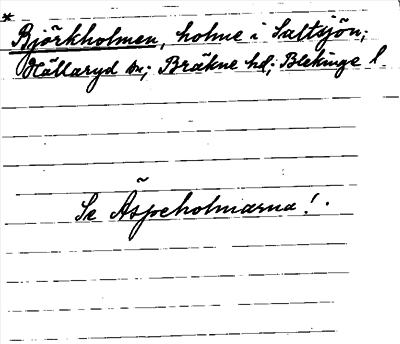 *Björkholmen, holme i Saltsjön;
Hällaryd sn; Bräkne hd; Blekinge l.
Se Äspeholmarna!